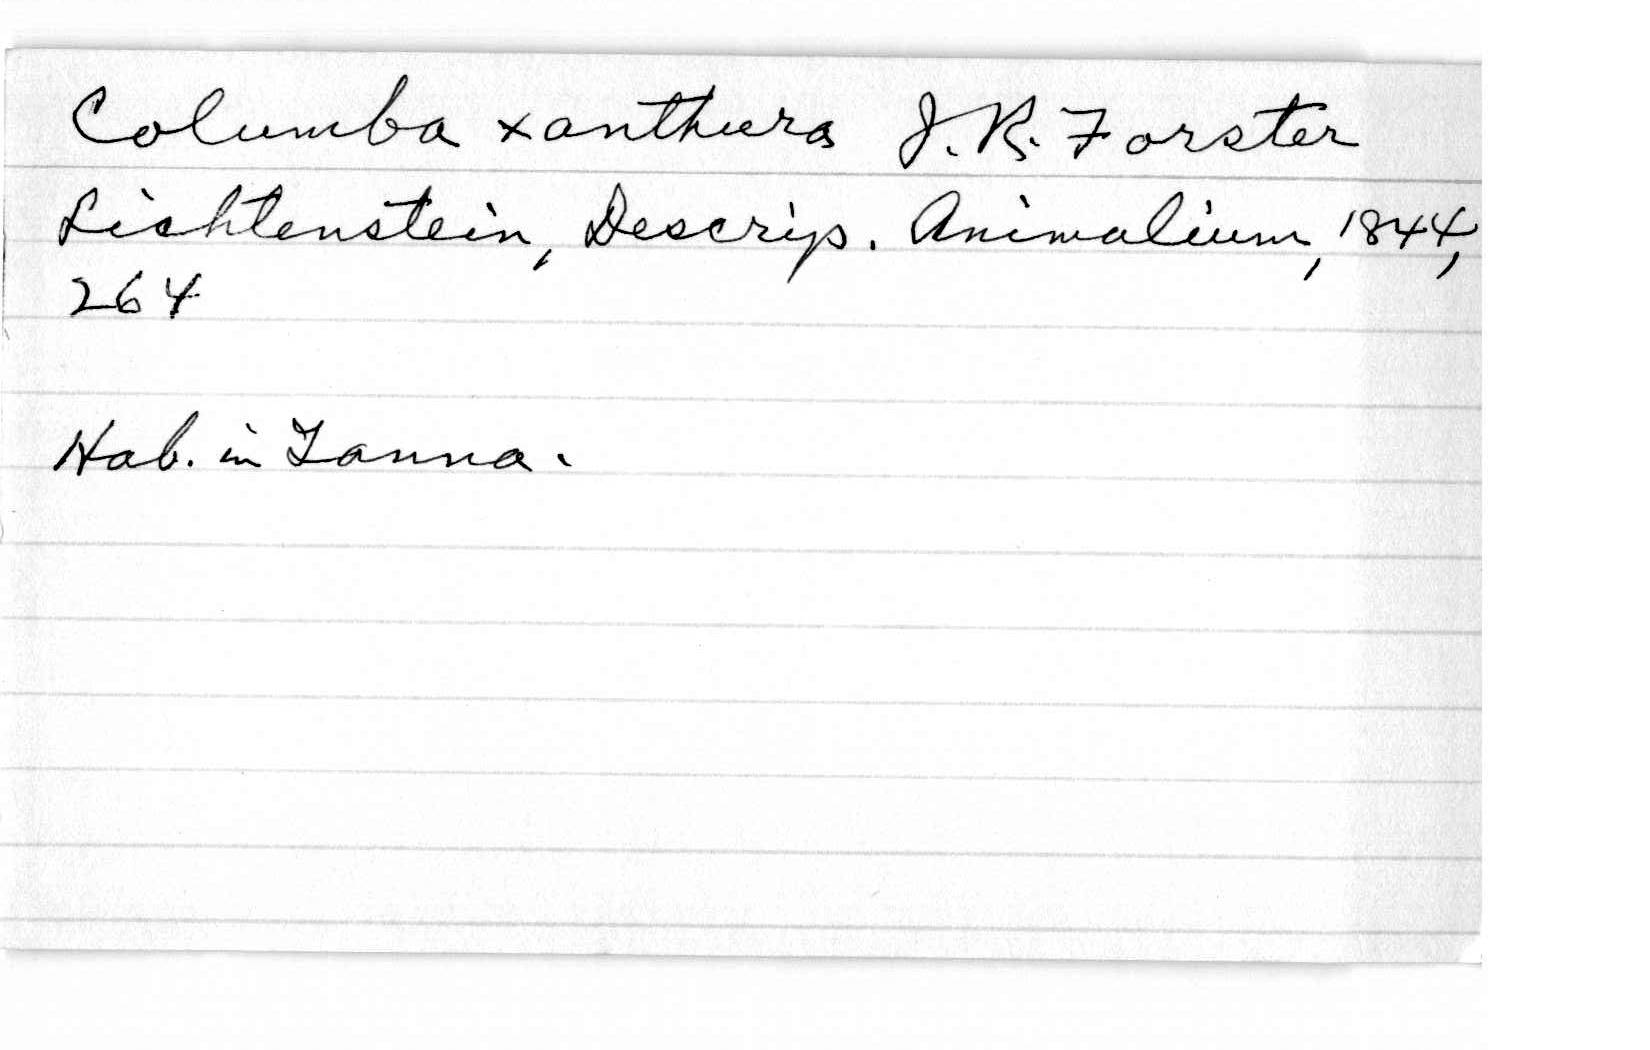 Columba xanthura J.R. Forster
Lichtenstein, Descrip. Animalium, 1844,
264
Hab. in Tanna.